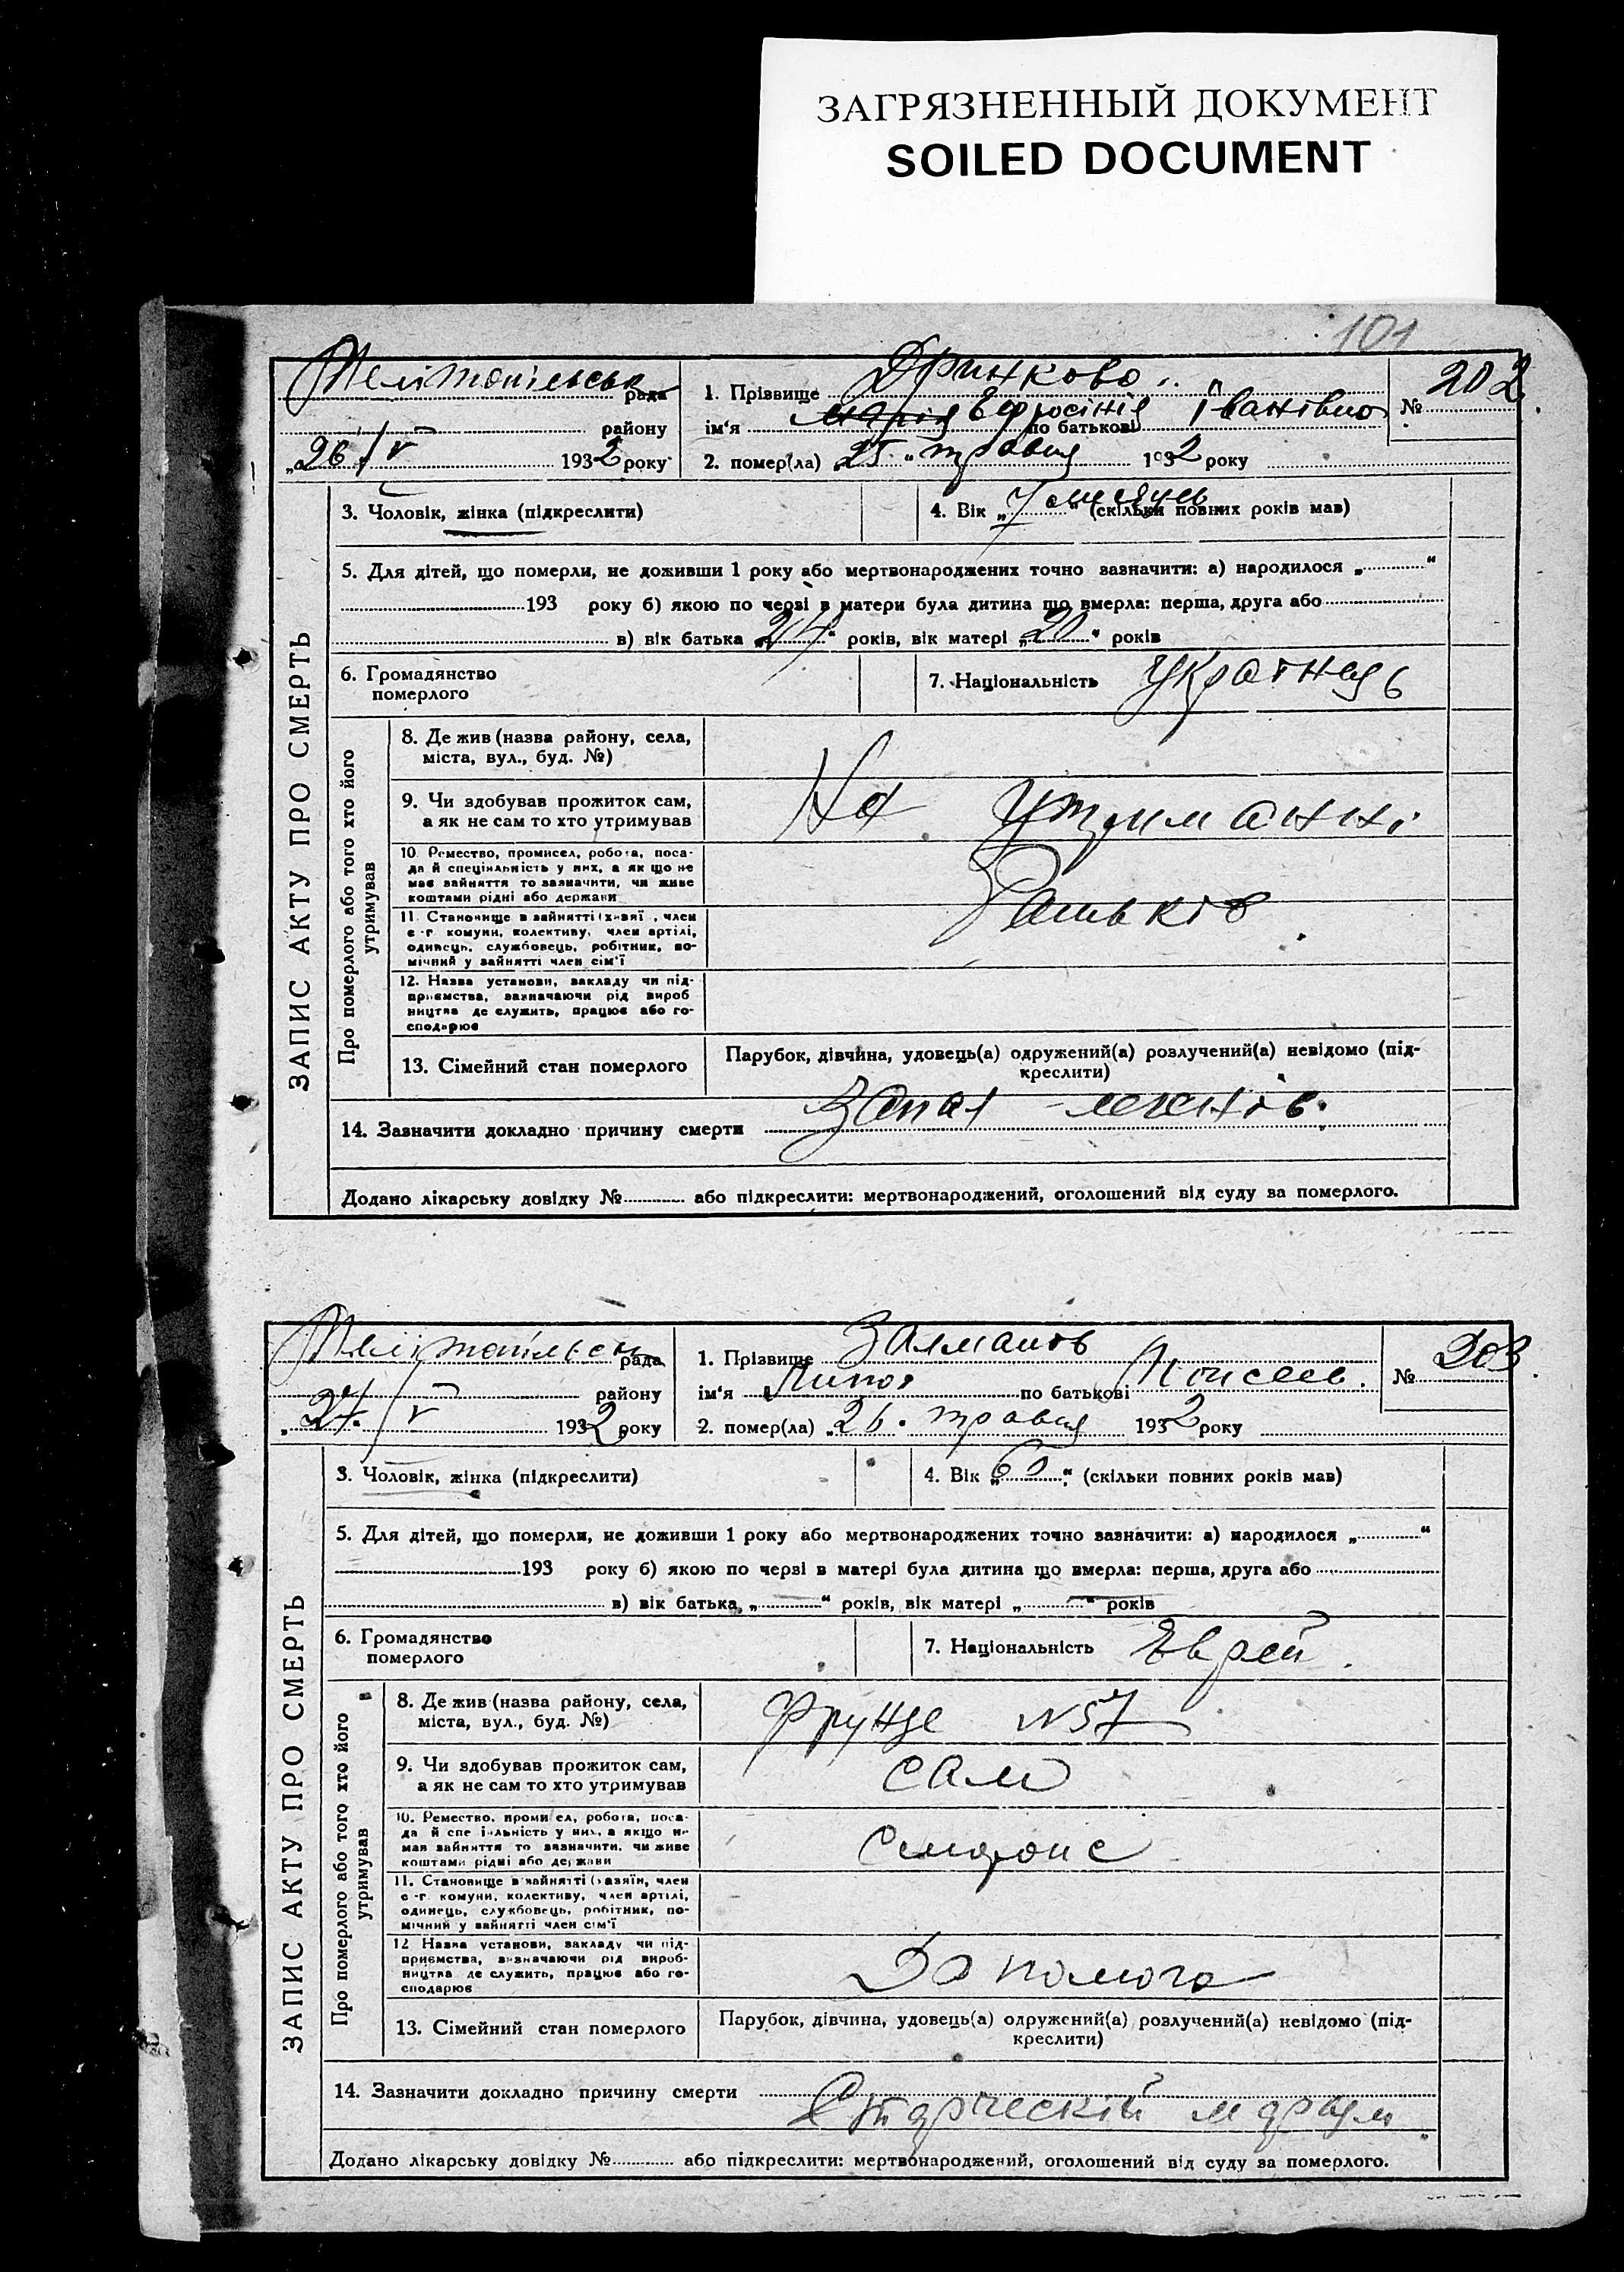 ЗАГРЯЗНЕННЫЙ ДОКУМЕНТ
SOILED DOCUMENT
101
Мелітопільська рада
району
„26/V 1932 року
1. Прізвище Дринкова
ім'я Марія Ефросінія по батькові Іванівна
2. помер(ла) „25" травня 1932 року
№ 202
ЗАПИС АКТУ ПРО СМЕРТЬ
3. Чоловік, жінка (підкреслити)
4. Вік „7 місяців" (скільки повних років мав)
5. Для дітей, що померли, не доживши 1 року або мертвонароджених точно зазначити: а) народилося „ "
193 року б) якою по черзі в матери була дитина що вмерла: перша, друга або
в) вік батька „24" років, вік матері „20" років
6. Громадянство
померлого
7. Національність Українець
Про померлого або того хто його
утримував
8. Де жив (назва району, села,
міста, вул., буд. №)
9. Чи здобував прожиток сам,
а як не сам то хто утримував
На утриманні
10. Ремество, промисел, робота, поса-
да й спеціяльність у них, а як що не
мав зайняття то зазначити, чи живе
коштами рідні або держави
батьків
11. Становище в зайнятті (хазяї, член
с.-г. комуни, колективу, член артілі,
одинець, службовець, робітник, по-
мічний у зайнятті член сім'ї
12. Назва установи, закладу чи під-
приємства, зазначаючи рід вироб
ництва де служить, працює або го-
сподарює
13. Сімейний стан померлого
Парубок, дівчина, удовець(а) одружений(а) розлучений(а) невідомо (під-
креслити)
14. Зазначити докладно причину смерти Запал легенів.
Додано лікарську довідку № або підкреслити: мертвонароджений, оголошений від суду за померлого.
рада
району
„27/V 1932 року
1. Прізвище Залманов
ім'я по батькові Моисеев.
2. помер(ла) „26. травня 1932 року
№ 203
ЗАПИС АКТУ ПРО СМЕРТЬ
3. Чоловік, жінка (підкреслити)
4. Вік „60" (скільки повних років мав)
5. Для дітей, що померли, не доживши 1 року або мертвонароджених точно зазначити: а) народилося „ "
193 року б) якою по черзі в матері була дитина що вмерла: перша, друга або
в) вік батька „ " років, вік матері „ " років
6. Громадянство
померлого
7. Національність Еврей.
Про померлого або того хто його
утримував
8. Де жив (назва району, села,
міста, вул., буд. №)
Фрунзе №57
9. Чи здобував прожиток сам,
а як не сам то хто утримував
сам
10. Ремество, промисел, робота, поса-
да й спеціяльність у них, а якщо не
мав зайняття то зазначити, чи живе
коштами рідні або держави
11. Становище в зайнятті (хазяїн, член
с.-г. комуни, колективу, член артілі,
одинець, службовець, робітник, по-
мічний у зайнятті член сім'ї
12. Назва установи, закладу чи під-
приємства, зазначаючи рід вироб-
ництва де служить, працює або го-
сподарює
Допомога
13. Сімейний стан померлого
Парубок, дівчина, удовець(а) одружений(а) розлучений(а) невідомо (під-
креслити)
14. Зазначити докладно причину смерти Старческій маразм
Додано лікарську довідку № або підкреслити: мертвонароджений, оголошений від суду за померлого.